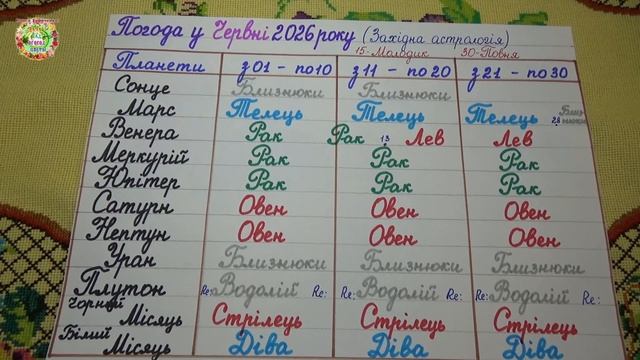 Погода у Червні 2026 року (Західна астрологія)
15-Молодик 30-Повня
Планети з 01 - по 10 з 11 - по 20 з 21 - по 30
Сонце Близнюки Близнюки
Марс Телець Телець Телець 28 Близнюки
Венера Рак Рак 13 Лев Лев
Меркурій Рак Рак Рак
Юпітер Рак Рак Рак
Сатурн Овен Овен Овен
Нептун Овен Овен Овен
Уран Близнюки Близнюки Близнюки
Плутон Re: Водолій Re: Водолій Re: Водолій Re:
Чорний
Місяць Стрілець Стрілець Стрілець
Білий
Місяць Діва Діва Діва